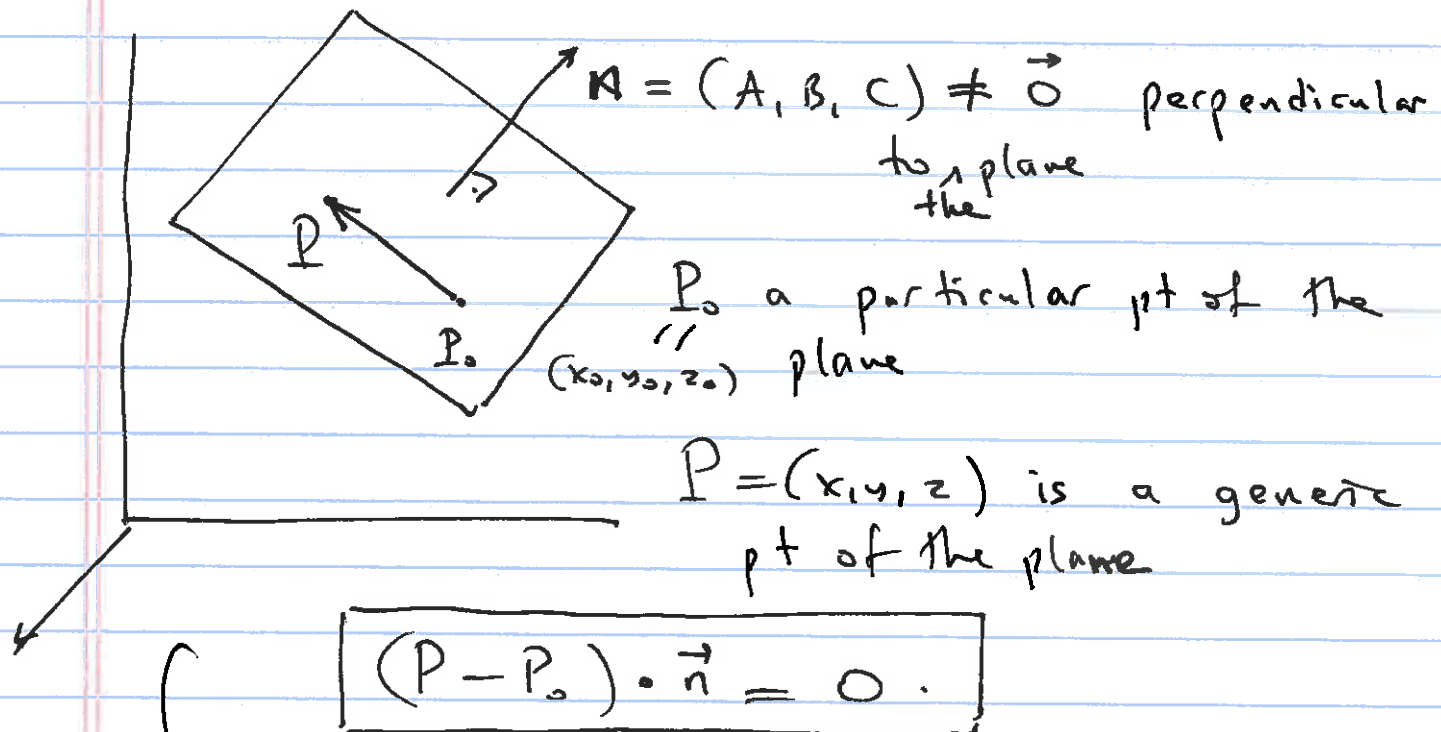 𝐧 = (A, B, C) ≠ \vec{0} perpendicular
to the plane
P
P₀
P₀ a particular pt of the
(x₀, y₀, z₀) plane
P = (x, y, z) is a generic
pt of the plane
(P − P₀) • \vec{n} = 0.